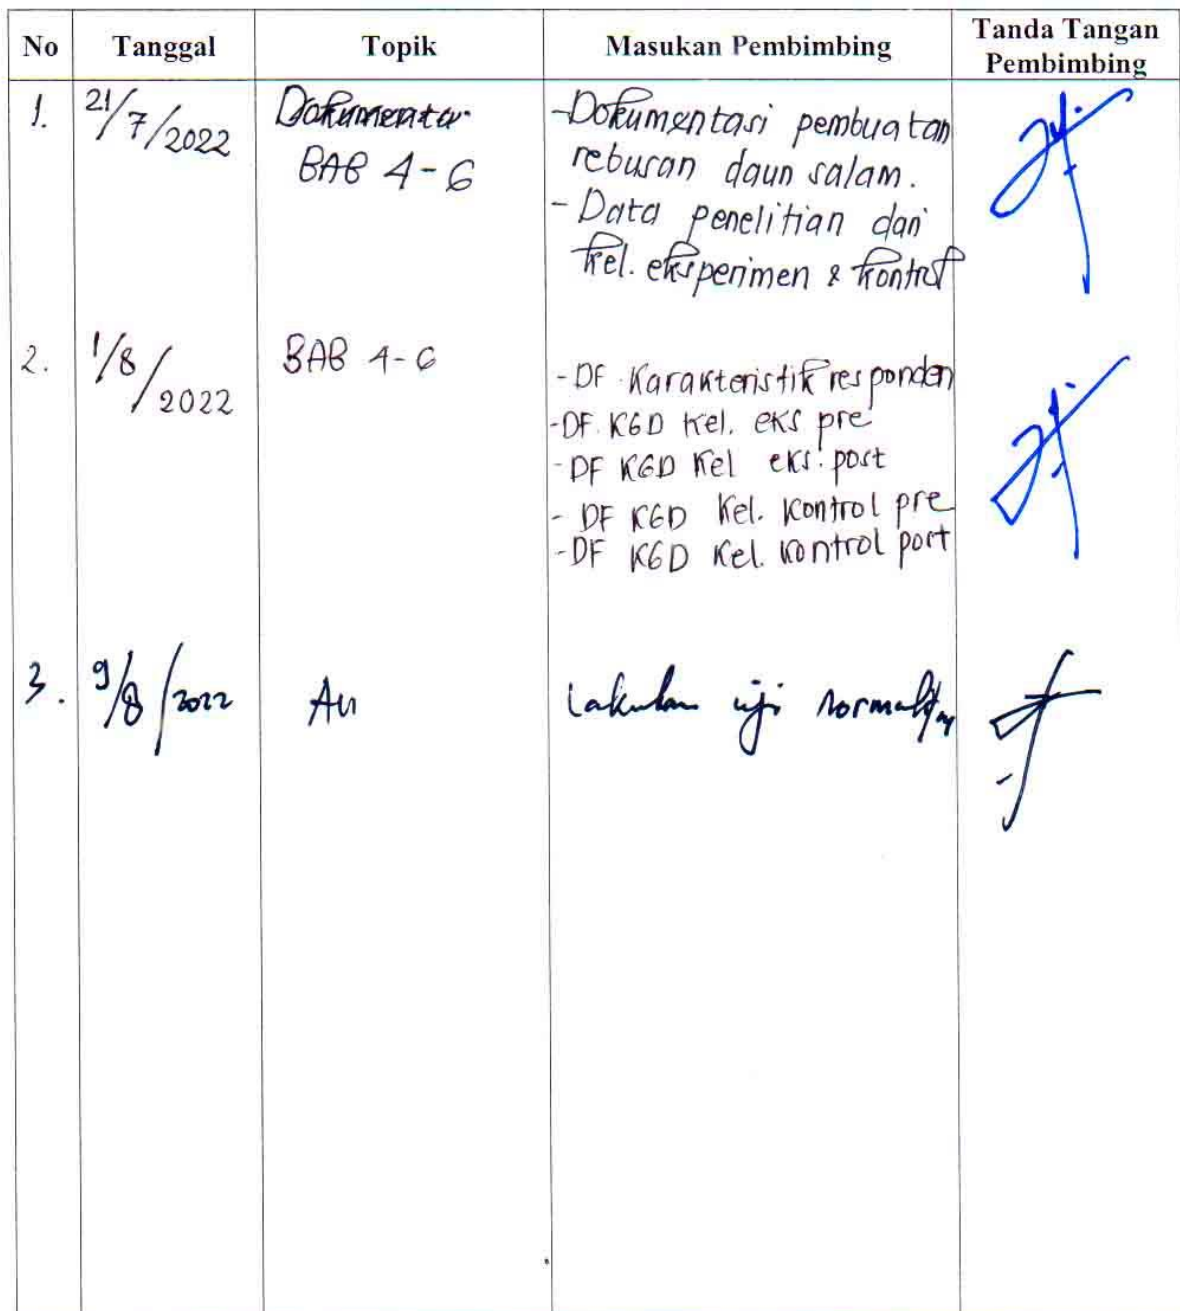 No Tanggal Topik Masukan Pembimbing Tanda Tangan Pembimbing
1. 21/7/2022 Dokumenta - Dokumentasi pembuatan
BAB 4-6 rebusan daun salam.
- Data penelitian dari
kel. eksperimen & kontrol
2. 1/8/2022 BAB 4-6
- DF Karakteristik responden
- DF. KGD kel. eks pre
- DF KGD Kel eks. post
- DF KGD Kel. Kontrol pre
- DF KGD Kel. Kontrol post
3. 9/8/2022 Lakukan uji normalitas